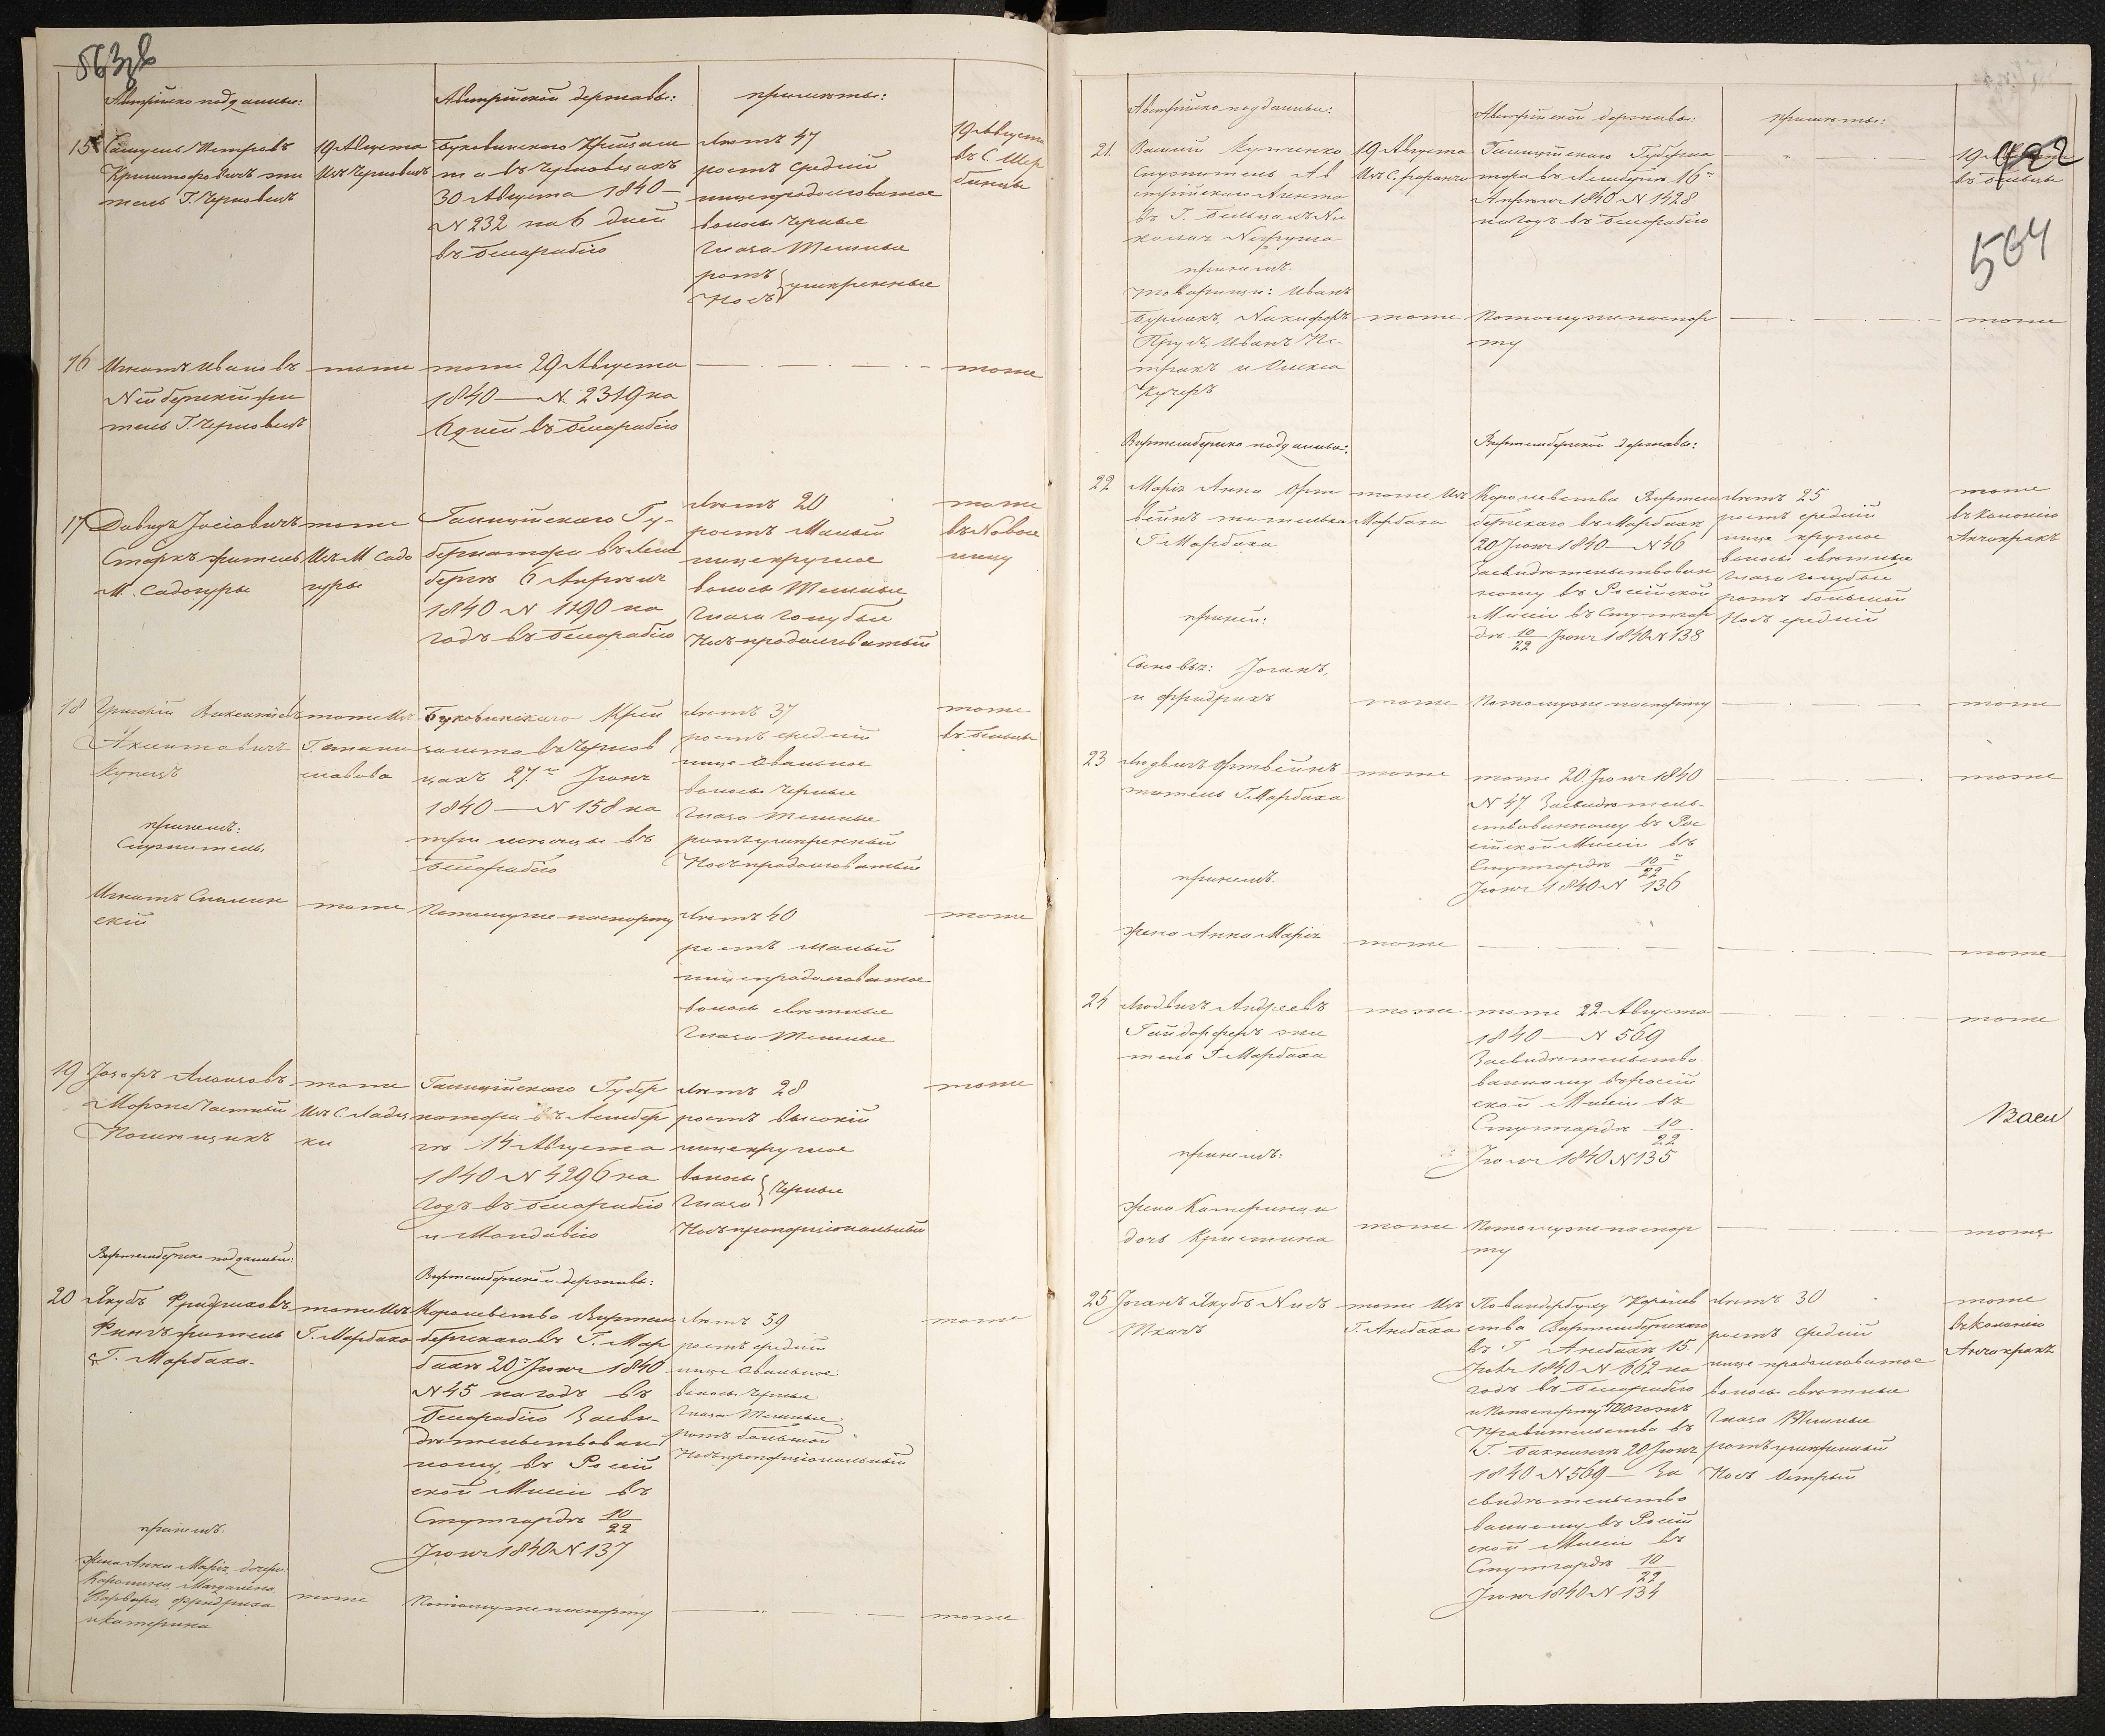 563об
Австрійско подданные:
Австрійской державы:
приметы:
15
Самуель Петровъ
Криштофовичъ жи
тель Г. Черновецъ
19 Августа
Изъ Черновецъ
Буковинскаго Крейзам
та въ Черновцахъ
30 Августа 1840 —
N 232 на 6 дней
въ Бесарабію
Летъ 47
ростъ средній
лице продолговатое
волосы черные
глаза темные
ротъ
носъ } умеренные
19 Августа
въ С. Шер
бинцы
16
Игнатъ Ивановъ
жи
тель Г. Черновецъ
тоже
тоже 29 Августа
1840 — N 2319 на
6 дней въ Бесарабію
тоже
17
Давидъ Іосіовичъ
Старкъ житель
М. Садогуры
тоже
Изъ М Садо
гуры
Галиційскаго Гу-
бернатора въ Лем
берге 6 Апреля
1840 N 1190 на
годъ въ Бесарабію
Летъ 20
ростъ Малый
лице круглое
волосы Темные
глаза голубые
Носъ продолговатый
тоже
въ Новосе
лицу
18
Григорій
Аксентовичъ
Купецъ
тоже Изъ
Г. Стани
славова
Буковинскаго Крей
замта въ Чернов
цахъ 27 Іюня
1840 — N 158 на
три месяцы въ
Бесарабію
Летъ 37
ростъ средній
лице Овальное
волосы черные
глаза темные
ротъ умеренный
Носъ продолговатый
тоже
въ Бельцы
принемъ:
Служитель,
Игнатъ
скій
тоже
Потомуже паспорту
Летъ 40
ростъ малый
лице продолговатое
волосы светлые
глаза Темные
тоже
19
Іозефъ
Частный
Помещикъ
тоже
Изъ С.
ки
Галиційскаго Губер
натора въ Лембер
ге 14 Августа
1840 N 4296 на
годъ въ Бесарабію
и Молдавію
Летъ 28
ростъ высокій
лице круглое
волосы
глаза } Черные
Носъ пропорціональный
тоже
Виртембергско подданный:
Виртембергской державы:
20
Якубъ Фридриховъ
Финкъ житель
Г. Марбаха
тоже Изъ
Г. Марбаха
Королевства Виртем
бергскаго въ Г. Мар
бахе 20 Іюня 1840
N 45 на годъ въ
Бесарабію Засви-
детельствован
ному въ Россій
ской Миссіи въ
Стутгарде 10/22
Іюня 1840 N 137
Летъ 39
ростъ средній
лице овальное
волосы черные
глаза темные
ротъ большой
Носъ пропорціональный
тоже
принемъ.
жена Анна Марія, дочери
Каролина, Магдалина,
Варвара, Фридрика
и Катерина
тоже
Потомуже паспорту
тоже
Австрійско подданные:
Австрійской державы:
приметы:
22
564
21.
Василій Купченко
Служитель Ав
стрійскаго Агента
въ Г. Бельцахъ Ни
колая
19 Августа
Изъ С.
Галиційскаго Губерна
тора въ Лемберге 16
Апреля 1840 N 1428
на годъ въ Бесарабію
19 Августа
въ Бельцы
принемъ.
товарищи: Иванъ
Бурлакъ, Никифоръ
Пругъ, Иванъ Пе-
тракъ и Олекса
Кучеръ
тоже
Потомуже паспор
ту
тоже
Виртембергско подданные:
Виртембергской державы:
22
Марія Анна Орт
вейнъ жителька
Г Марбаха
тоже Изъ
Марбаха
Королевства Виртем
бергскаго въ Марбахе
20 Іюня 1840 — N 46
Засвидетельствован
ному въ Россійской
Миссіи въ Стутгар
де 10/22 Іюня 1840 N 138
Летъ 25
ростъ средній
лице круглое
волосы светлые
глаза голубые
ротъ большой
Носъ средній
тоже
въ Колонію
Анчокракъ
приней:
Сыновья: Іоганъ,
и Фридрихъ
тоже
Потомуже паспорту
тоже
23
Людвигъ Ортвейнъ
житель Г Марбаха
тоже
тоже 20 Іюня 1840
N 47. Засвидетель-
ствованному въ Рос
сійской Миссіи въ
Стутгарде 10/22
Іюня 1840 N 136
тоже
принемъ.
жена Анна Марія
тоже
тоже
24
Людвигъ Андреевъ
Гайдорферъ жи
тель Г Марбаха
тоже
тоже 22 Августа
1840 — N 569
Засвидетельство
ванному въ Россій
ской Миссіи въ
Стутгарде 10/22
Іюня 1840 N 135
тоже
Васи
принемъ:
жена Катерина, и
дочь Кристина
тоже
Потомуже паспор
ту
тоже
25
Іоганъ Якубъ Нисъ
Ткачъ
тоже Изъ
Г. Ансбаха
Королев
ства Виртембергскаго
въ Г Ансбахе 15
Іюня 1840 N 662 на
годъ въ Бесарабію
и Попаспорту Тогожъ
Правительства въ
Г. Бакнанге 20 Іюня
1840 N 569 — За
свидетельство
ванному въ Россій
ской Миссіи въ
Стутгарде 10/22
Іюня 1840 N 134
Летъ 30
ростъ средній
лице продолговатое
волосы светлые
глаза Темные
ротъ умеренный
Носъ Острый
тоже
въ Колонію
Анчокракъ